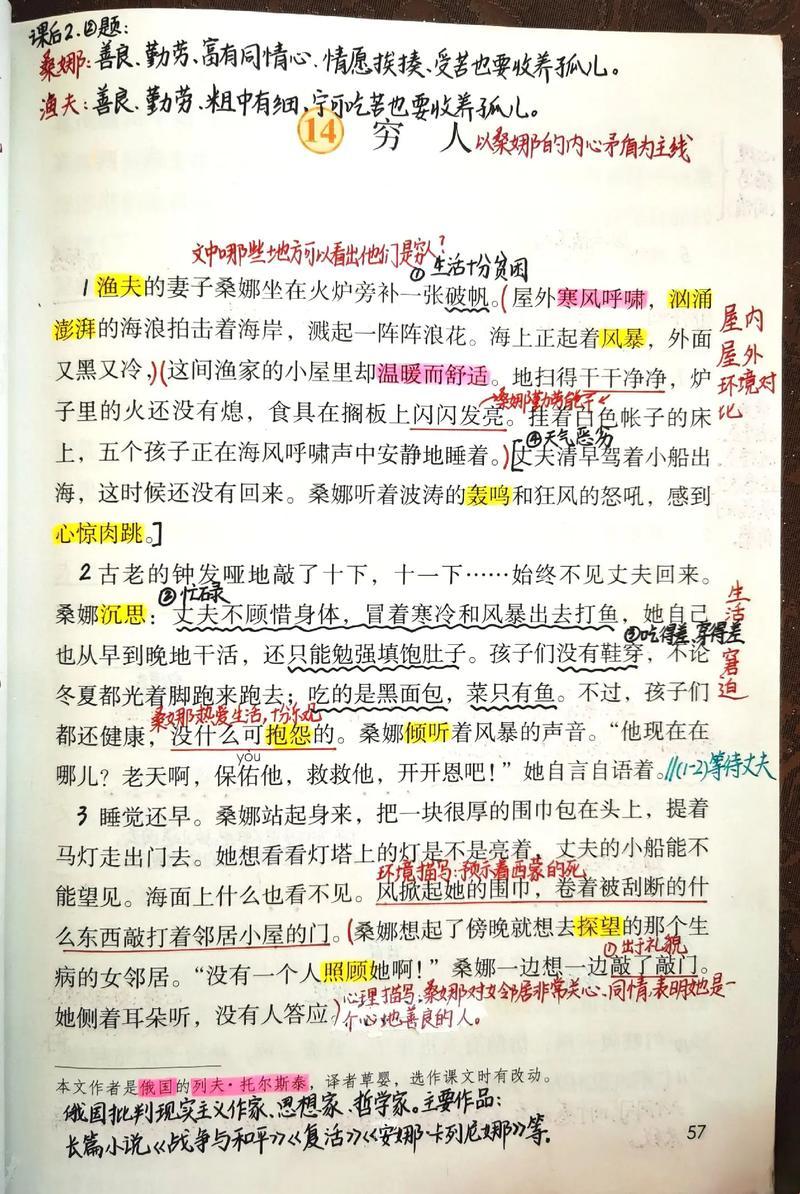 课后2.①题:
桑娜:善良、勤劳、富有同情心、情愿挨揍、受苦也要收养孤儿。
渔夫:善良、勤劳、粗中有细、宁可吃苦也要收养孤儿。
14 穷 人 以桑娜的内心矛盾为主线
文中哪些地方可以看出他们是穷人?
①生活十分贫困
1 渔夫的妻子桑娜坐在火炉旁补一张破帆。(屋外寒风呼啸,汹涌
澎湃的海浪拍击着海岸,溅起一阵阵浪花。海上正起着风暴,外面
又黑又冷,)(这间渔家的小屋里却温暖而舒适。地扫得干干净净,炉
屋内
屋外
环境对
比
桑娜勤劳能干
子里的火还没有熄,食具在搁板上闪闪发亮。挂着白色帐子的床
④天气恶劣
上,五个孩子正在海风呼啸声中安静地睡着。)[丈夫清早驾着小船出
海,这时候还没有回来。桑娜听着波涛的轰鸣和狂风的怒吼,感到
心惊肉跳。]
2 古老的钟发哑地敲了十下,十一下……始终不见丈夫回来。
③忙碌
桑娜沉思:丈夫不顾惜身体,冒着寒冷和风暴出去打鱼,她自己
②吃得差、穿得差
也从早到晚地干活,还只能勉强填饱肚子。孩子们没有鞋穿,不论
生活窘迫
冬夏都光着脚跑来跑去;吃的是黑面包,菜只有鱼。不过,孩子们
桑娜热爱生活,十分乐观
都还健康,没什么可抱怨的。桑娜倾听着风暴的声音。“他现在在
yòu
哪儿?老天啊,保佑他,救救他,开开恩吧!”她自言自语着。//(1-2)等待丈夫
3 睡觉还早。桑娜站起身来,把一块很厚的围巾包在头上,提着
马灯走出门去。她想看看灯塔上的灯是不是亮着,丈夫的小船能不
环境描写:预示着西蒙的死
能望见。海面上什么也看不见。风掀起她的围巾,卷着被刮断的什
么东西敲打着邻居小屋的门。(桑娜想起了傍晚就想去探望的那个生
①出于礼貌
病的女邻居。“没有一个人照顾她啊!”桑娜一边想一边敲了敲门。
她侧着耳朵听,没有人答应。)心理描写:桑娜对女邻居非常关心、同情,表明她是一
个心地善良的人。
本文作者是俄国的列夫·托尔斯泰,译者草婴,选作课文时有改动。
俄国批判现实主义作家、思想家、哲学家。主要作品:
长篇小说《战争与和平》《复活》《安娜·卡列尼娜》等。
57